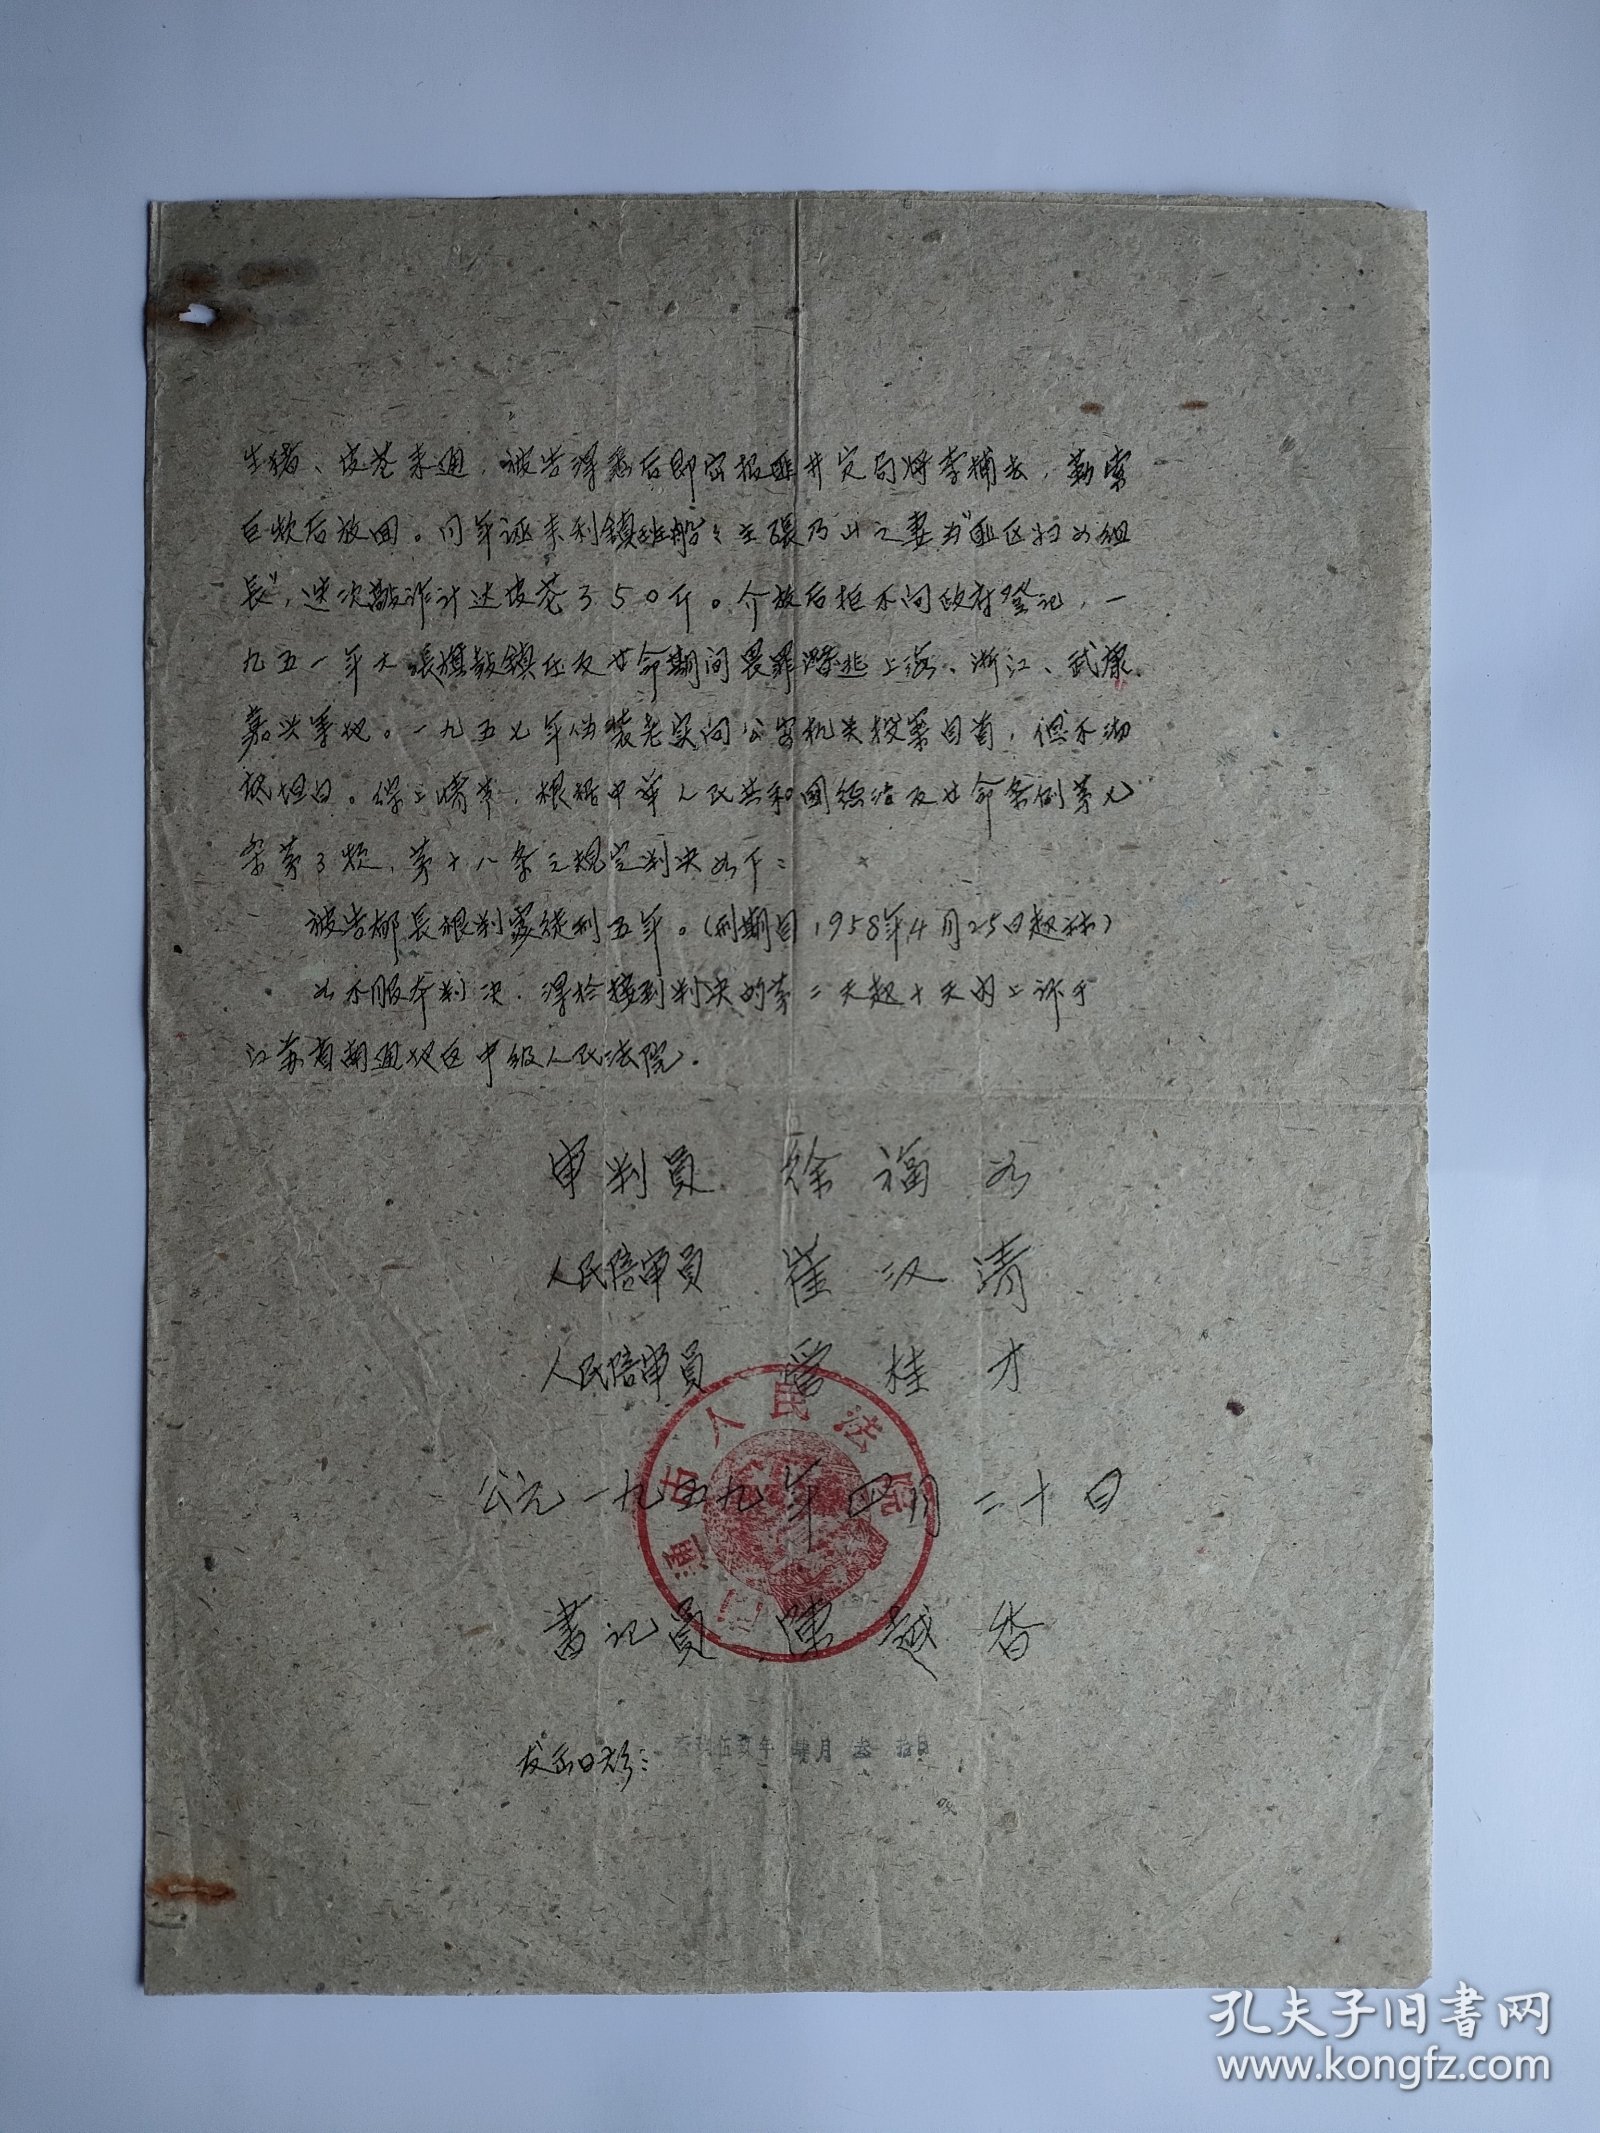 生猪、皮花来通，被告得悉后即密报匪井定为将李捕去，勒索
巨款后放回。同年诬来利镇班船主張乃山之妻为"匪区妇女组
長"，迭次敲诈计达皮花350斤。介放后拒不向政府登记，一
九五一年大張旗鼓鎮压反革命期间畏罪潜逃上海、浙江、武康
嘉兴等地。一九五七年伪装老实向公安机关投案自首，但不彻
底坦白。综上情节，根据中華人民共和國惩治反革命条例第九
条第3款，第十八条之规定判决如下：
被告郁長根判处徒刑五年。(刑期自1958年4月25日起祘)
如不服本判决，得於接到判决的第二天起十天内上诉于
江苏省南通地区中级人民法院。
审判员 徐福如
人民陪审员 崔汉清
人民陪审员 曹桂才
公元一九五九年四月二十日
書记員 陳越香
发出日期：
伍玖年 肆月 叁拾日
通市人民法院
孔夫子旧書网
www.kongfz.com